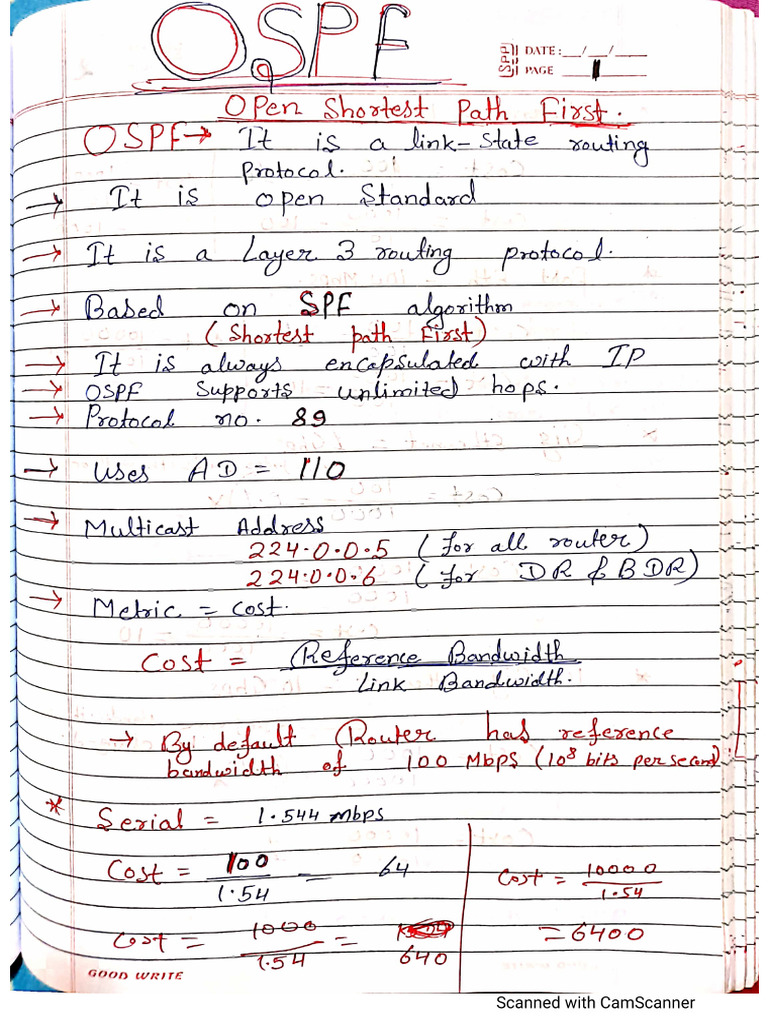 OSPF
SPM DATE: __/__/__
PAGE 1
Open Shortest Path First.
OSPF→ It is a link-state routing
protocol.
→ It is open Standard
→ It is a Layer 3 routing protocol.
→ Based on SPF algorithm
(Shortest path First)
→ It is always encapsulated with IP
→ OSPF Supports unlimited hops.
→ Protocol no. 89
→ Uses AD = 110
→ Multicast Address
224.0.0.5 (for all router)
224.0.0.6 (for DR & BDR)
→ Metric = cost.
Cost = Reference Bandwidth
Link Bandwidth.
→ By default Router has reference
bandwidth of 100 Mbps (10⁸ bits per second)
* Serial = 1.544 mbps
Cost = 100 / 1.54 = 64
Cost = 1000 / 1.54 = 640
Cost = 10000 / 1.54
= 6400
GOOD WRITE
Scanned with CamScanner